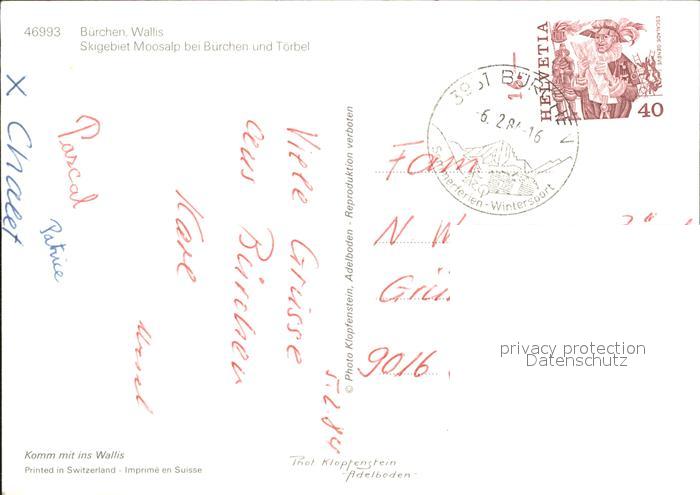 46993 Bürchen, Wallis
Skigebiet Moosalp bei Bürchen und Törbel
X Chalet
Viele Grüsse
aus Bürchen
Pascal
Patrice
5.2.84
Komm mit ins Wallis
Printed in Switzerland - Imprimé en Suisse
© Photo Klopfenstein, Adelboden - Reproduktion verboten
Phot Klopfenstein
-Adelboden-
HELVETIA
ESCALADE GENÈVE
40
-6.2.84-16
Sommerferien-Wintersport
Fam
N. W
9016
privacy protection
Datenschutz